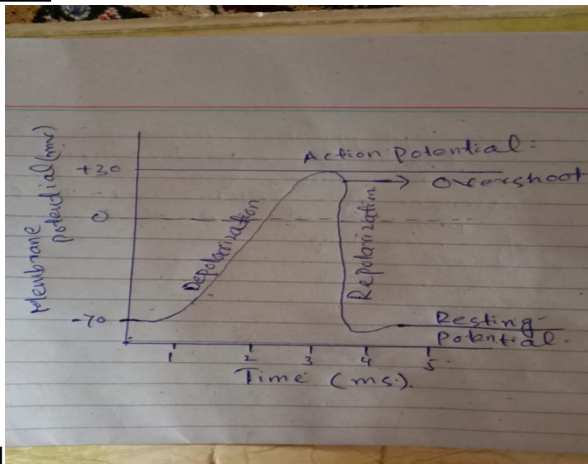 Action Potential:
+30
Overshoot
Membrane
potential (mv)
0
Depolarization
Repolarization
-70
Resting
Potential.
1 2 3 4 5
Time (ms).